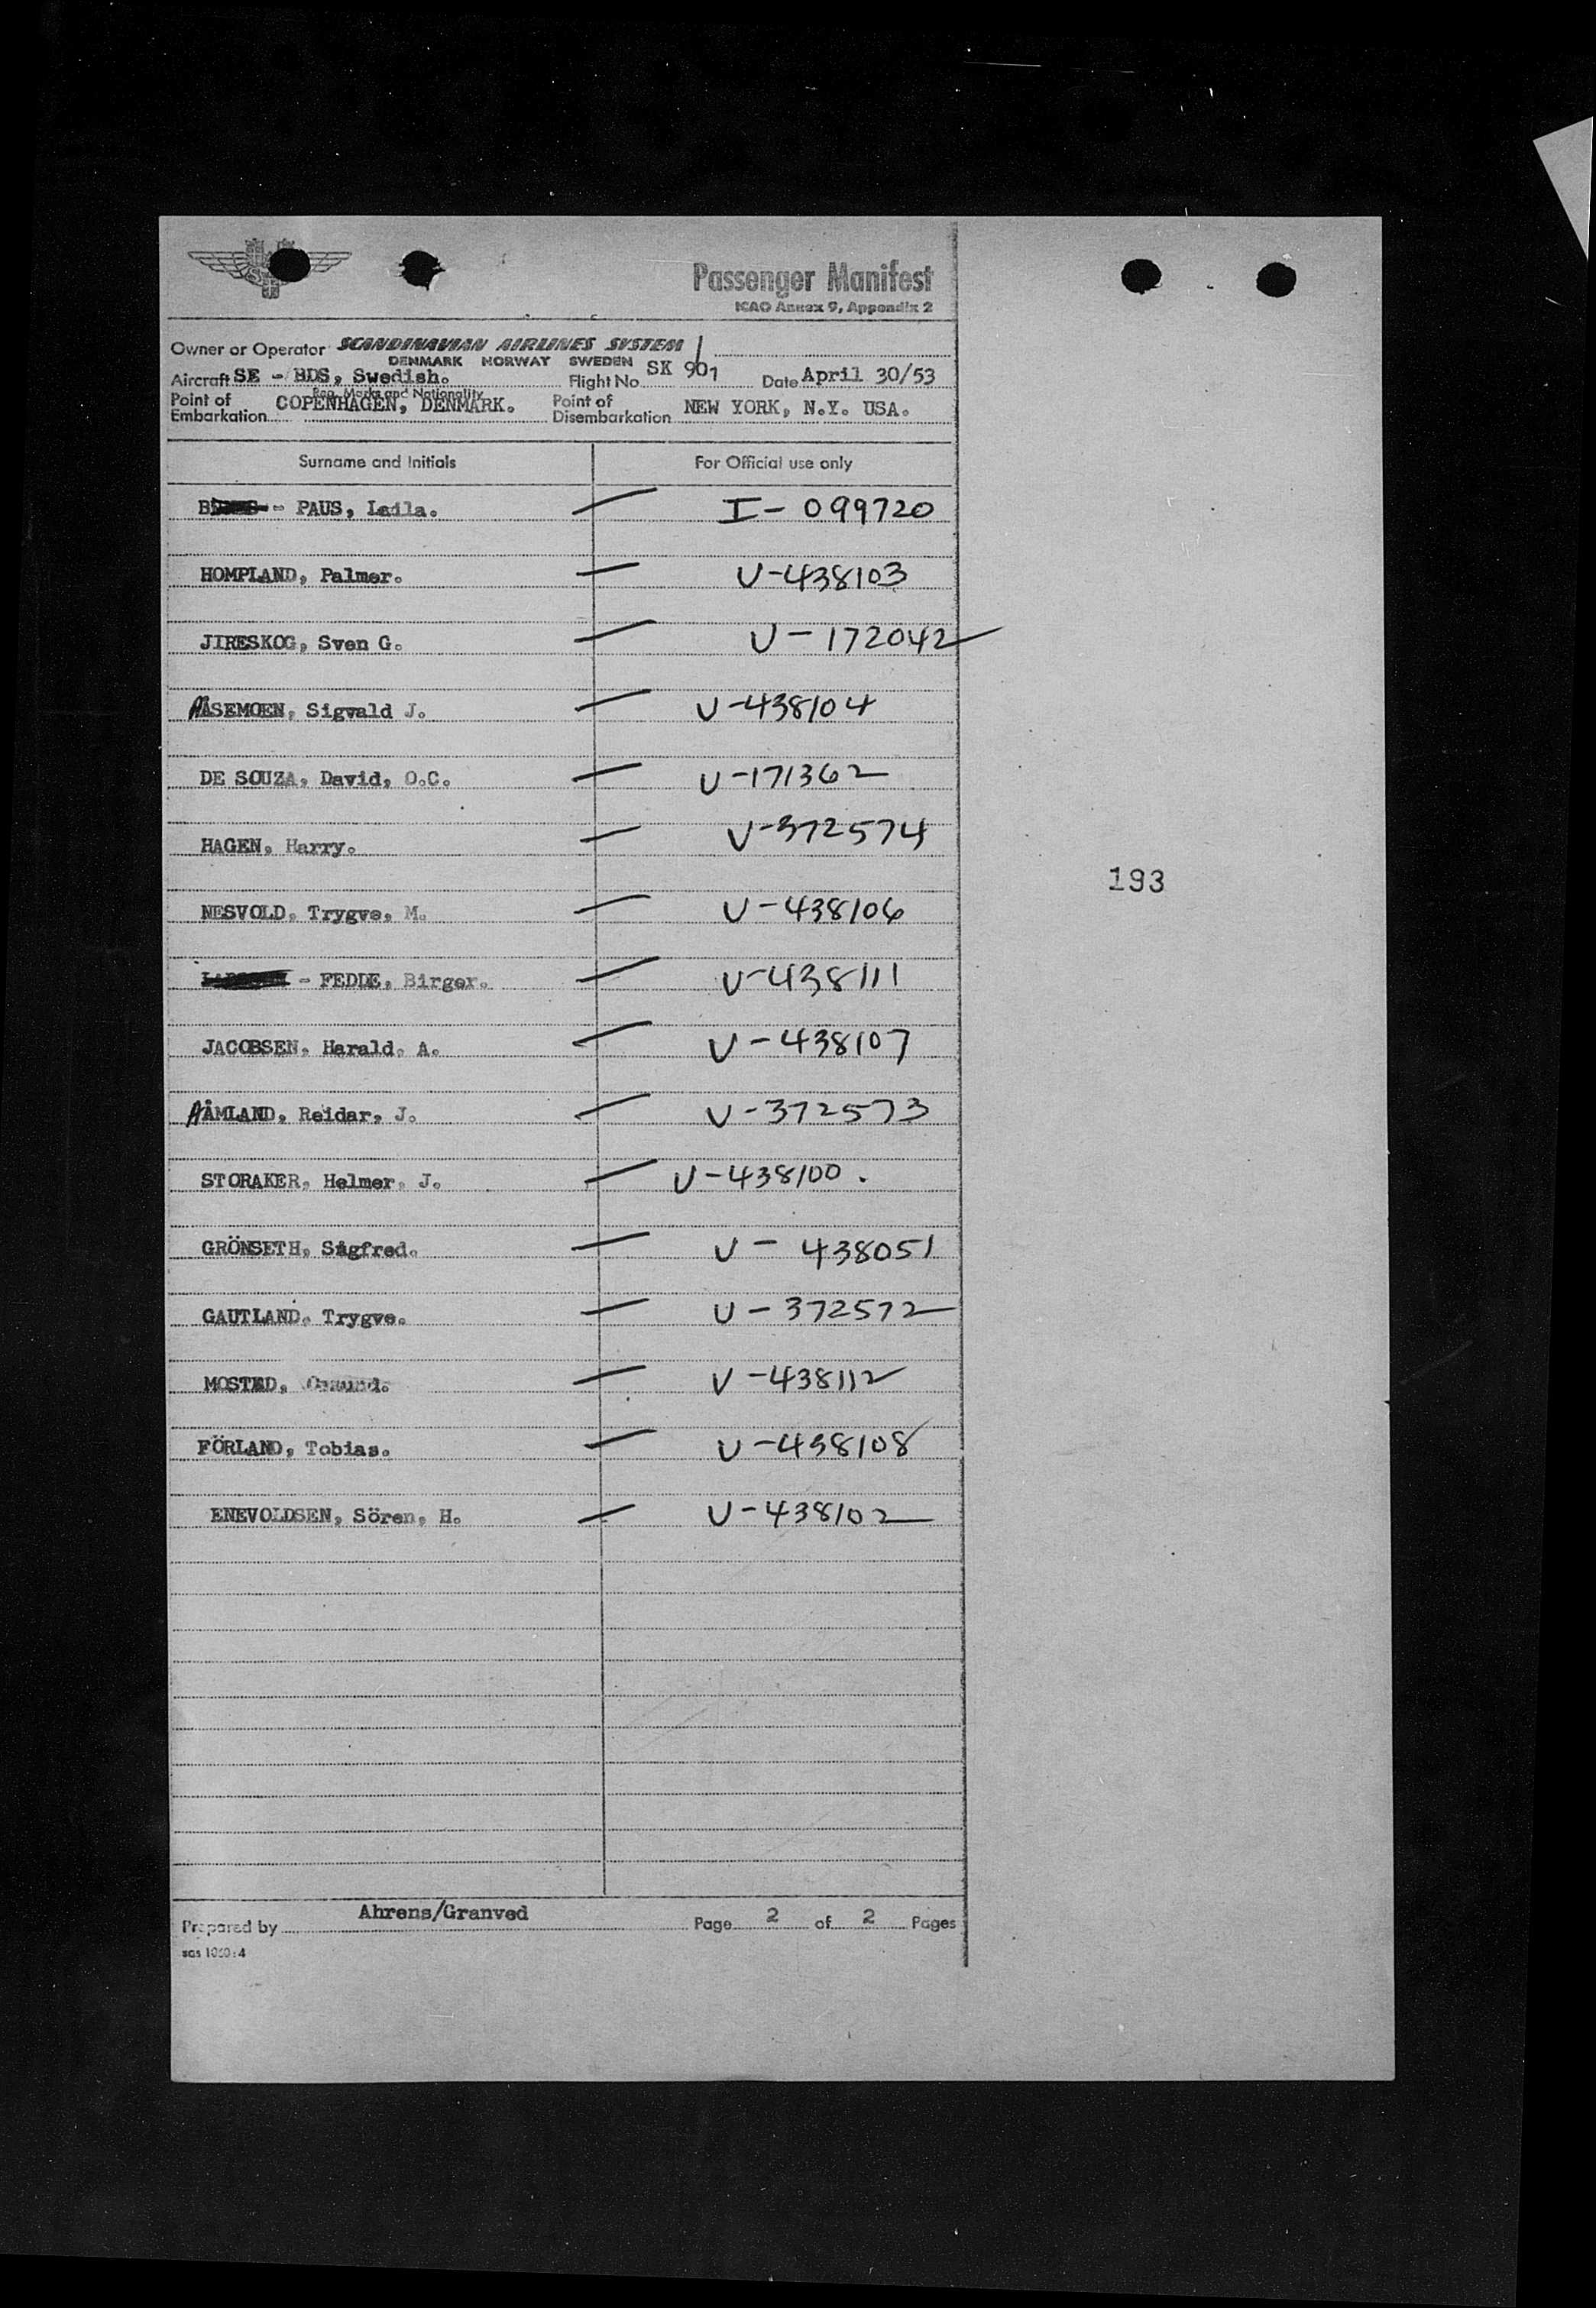 Passenger Manifest
ICAO Annex 9, Appendix 2
Owner or Operator SCANDINAVIAN AIRLINES SYSTEM
DENMARK NORWAY SWEDEN
Aircraft SE - BDS, Swedish. Flight No SK 901 Date April 30/53
Reg. Marks and Nationality
Point of Embarkation COPENHAGEN, DENMARK. Point of Disembarkation NEW YORK, N.Y. USA.
Surname and Initials For Official use only
- PAUS, Laila. — I - 099720
HOMPLAND, Palmer. — V-438103
JIRESKOG, Sven G. — V - 172042
AÅSEMOEN, Sigvald J. — V-438104
DE SOUZA, David, O.C. — V-171362
HAGEN, Harry. — V-372574
193
NESVOLD, Trygve, M. — V-438106
- FEDDE, Birger. — V-438111
JACOBSEN, Harald, A. — V-438107
AÅMLAND, Reidar, J. — V-372573
STORAKER, Helmer, J. — V-438100.
GRÖNSETH, Sigfred. — V - 438051
GAUTLAND, Trygve. — V - 372572
MOSTAD, — V-438112
FÖRLAND, Tobias. — V-438108
ENEVOLDSEN, Sören, H. — V-438102
Prepared by Ahrens/Granved Page 2 of 2 Pages